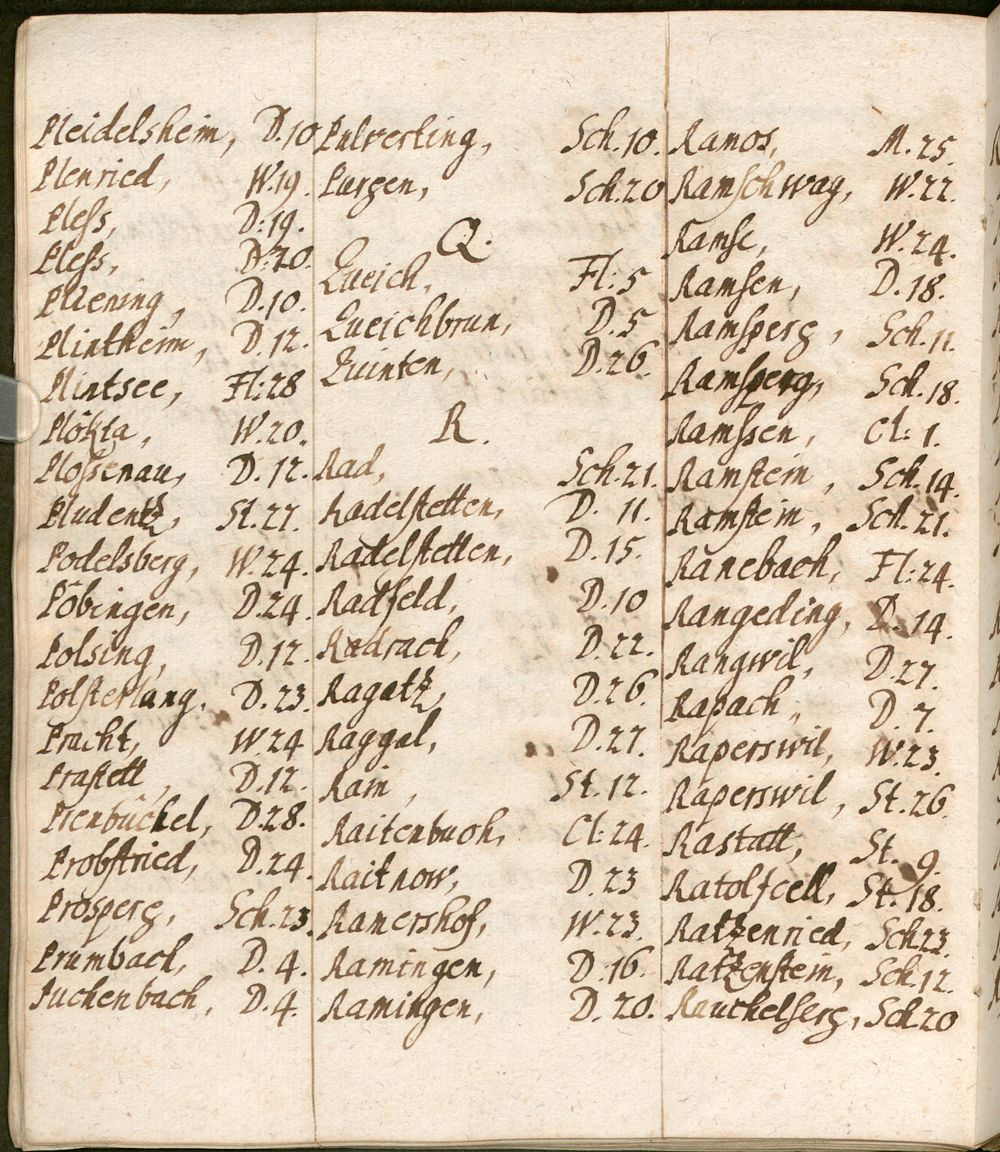 Pleidelsheim, D.10
Plenried, W.19.
Pless, D:19.
Pless, D.20.
Pliening, D.10.
Plintheim, D.12.
Plintsee, Fl:28
W.20.
Plossenau, D.12.
Pludentz, St.27.
Podelsberg, W.24.
Pöbingen, D.24.
Polsing, D.12.
Polsterlang, D.23.
Pracht, W.24
Prastett, D.12.
Prenbüchel, D.28.
Probstried, D.24.
Prosperg, Sch.23.
Prumbach, D.4.
Puchenbach, D.4.
Pulverting, Sch.10.
Purgen, Sch.20
Q.
Queich, Fl:5
Queichbrun, D.5
Quinten, D.26.
R.
Rad, Sch.21.
Radelstetten, D. 11.
Radelstetten, D.15.
Radfeld, D.10
Radrach, D.22.
Ragatz, D.26.
Raggal, D.27.
Rain, St.12.
Raitenbuoh, Cl:24.
Raitnow, D.23
Ramershof, W.23.
Ramingen, D.16.
Ramingen, D.20.
Ramos, M.25.
Ramschwag, W.22.
Ramse, W.24.
Ramsen, D.18.
Ramsperg, Sch.11.
Ramsperg, Sch.18.
Ramssen, Cl: 1.
Ramstein, Sch.14.
Ramstein, Sch.21.
Ranebach, Fl:24.
Rangeding, D.14.
Rangwil, D.27.
Rapach, D.7.
Raperswil, W.23.
Raperswil, St.26.
Rastatt, St. 9.
Ratolfcell, St.18.
Ratzenried, Sch.23
Ratzenstein, Sch.12.
Sch.20